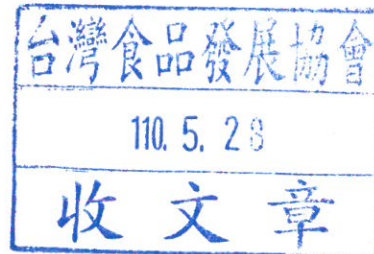 台灣食品發展協會
110. 5. 28
收文章